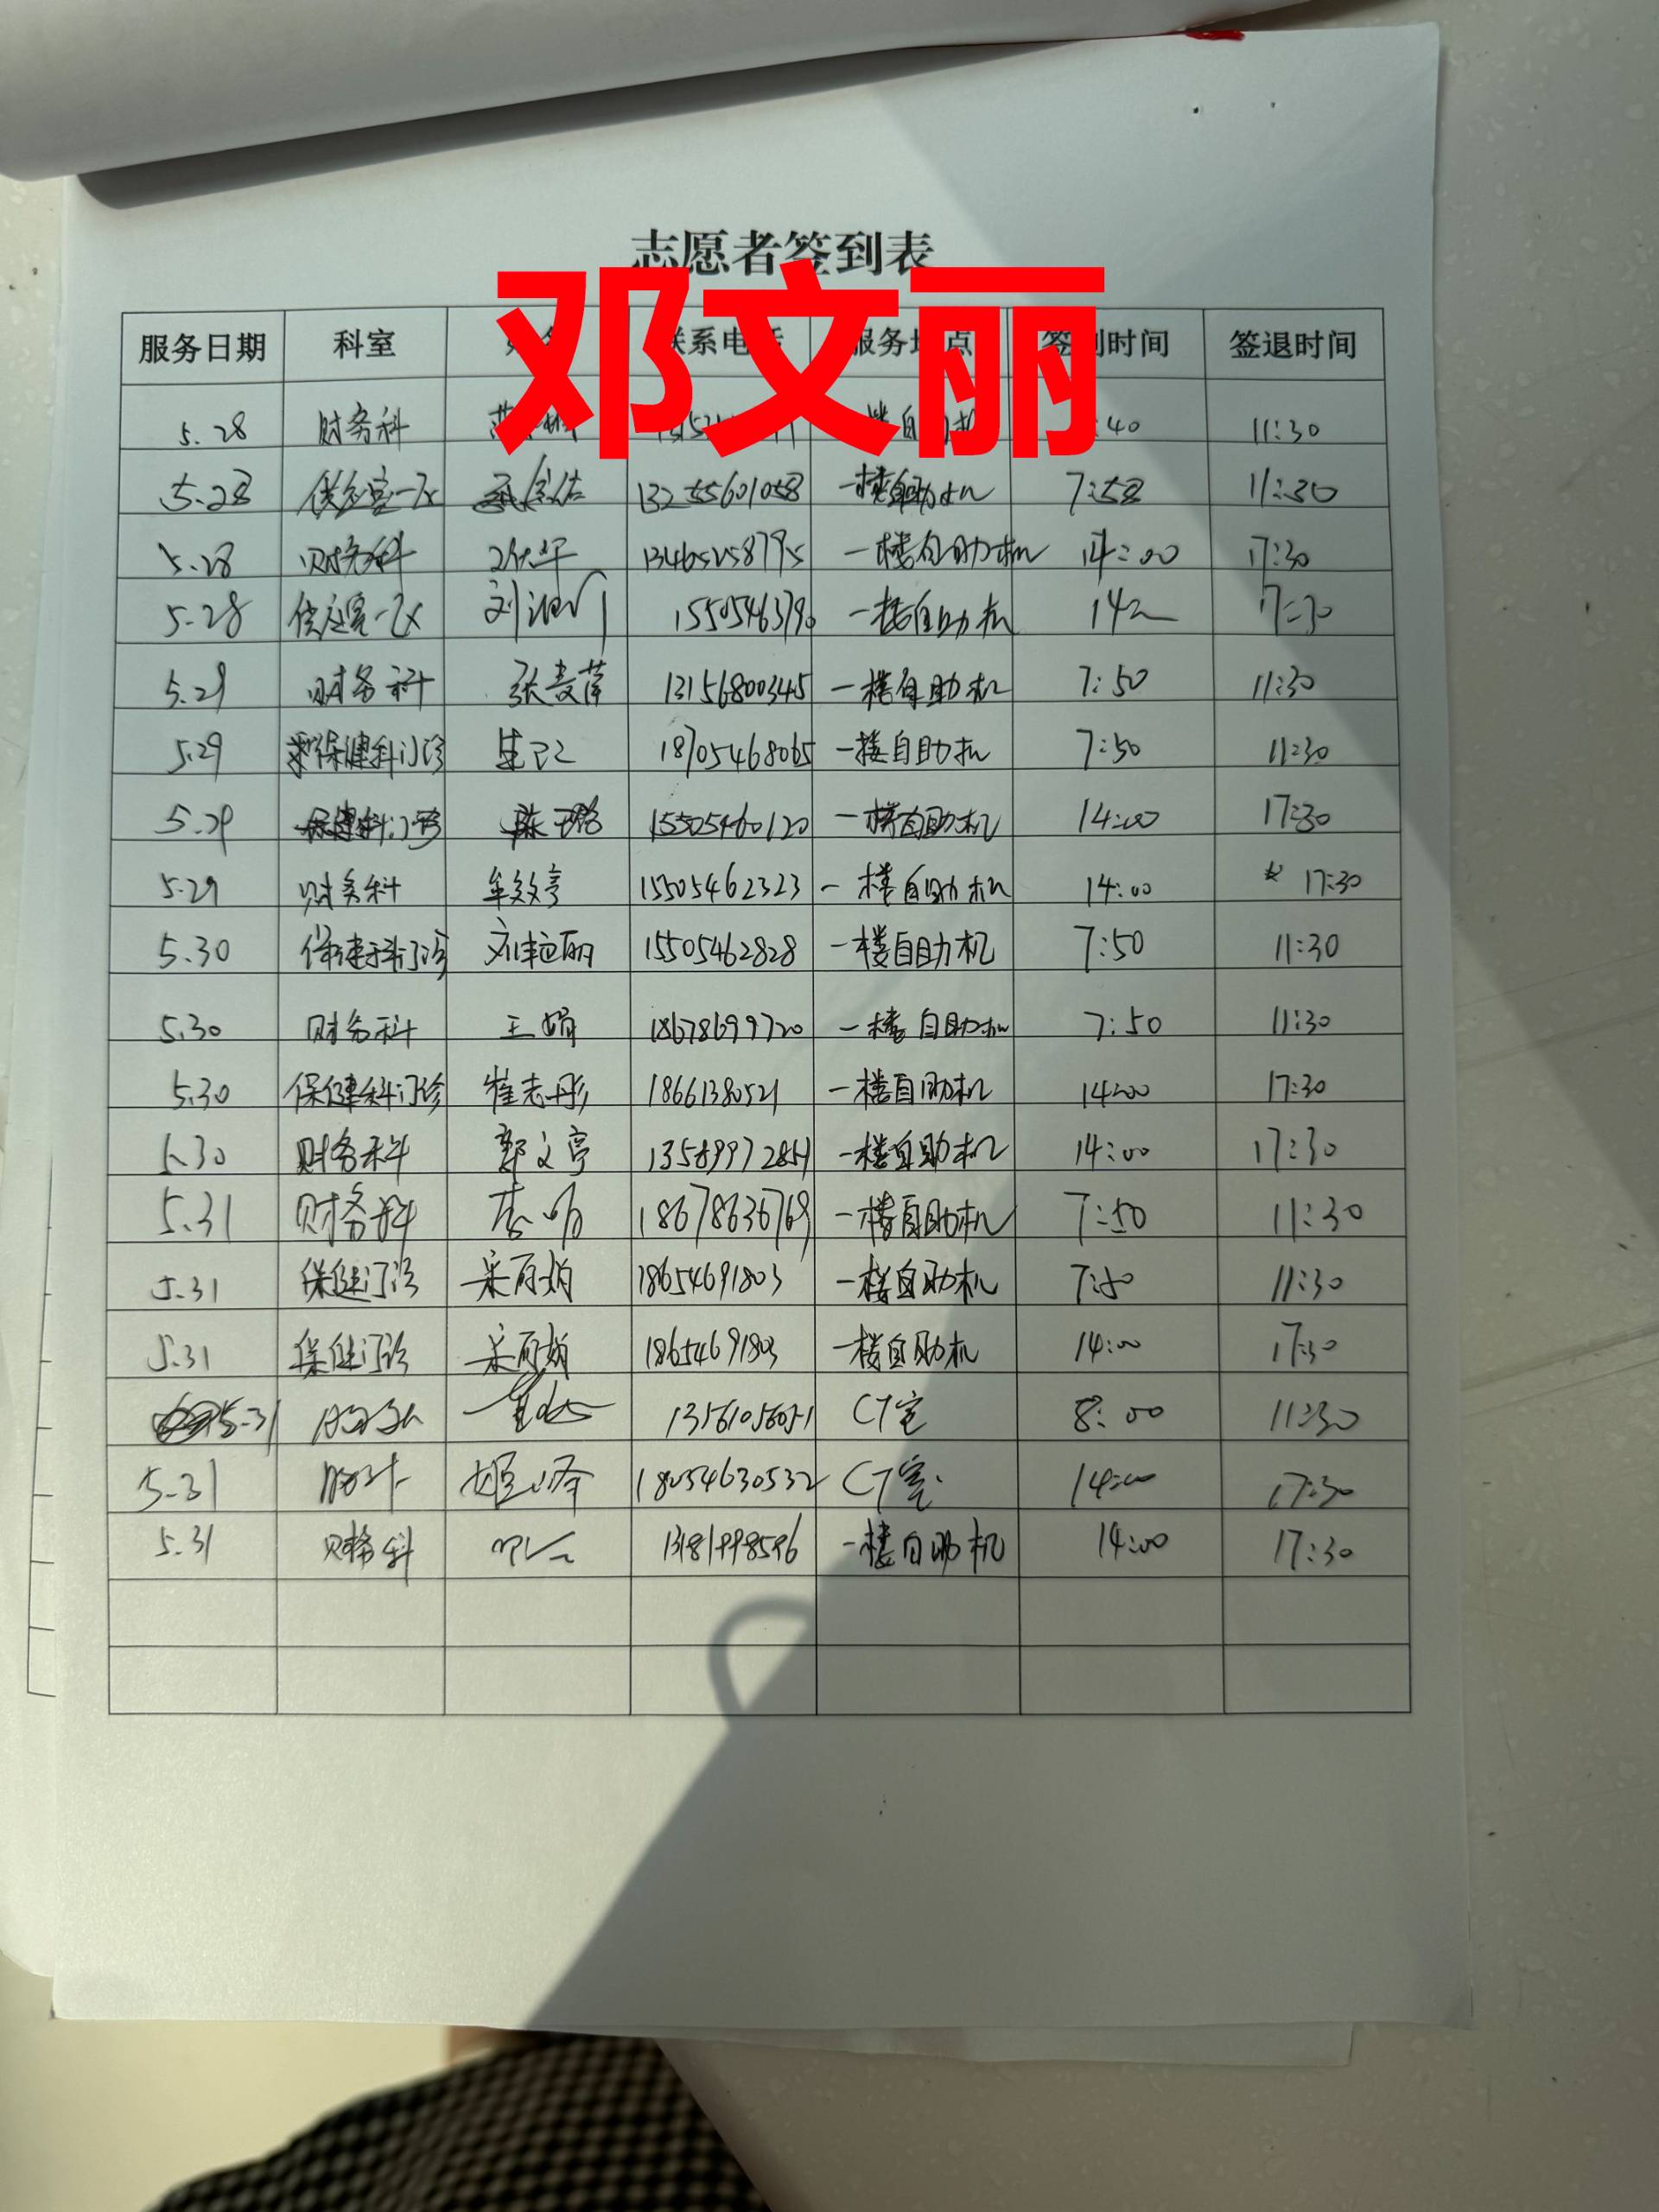 志愿者签到表
邓文丽
服务日期 科室 联系电话 服务地点 签到时间 签退时间
5.28 财务科 :40 11:30
5.28 13255601058 一楼自助机 7:58 11:30
5.28 财务科 13465258795 一楼自助机 14:00 17:30
5.28 供应室一区 刘 15505463790 一楼自助机 17:30
5.29 财务科 张麦萍 13156800345 一楼自助机 7:50 11:30
5.29 保健科门诊 18705468065 一楼自助机 7:50 11:30
5.29 保健科门诊 陈璐 15505460120 一楼自助机 14:00 17:30
5.29 财务科 牟效亭 15505462323 一楼自助机 14:00 17:30
5.30 保健科门诊 刘艳丽 15505462828 一楼自助机 7:50 11:30
5.30 财务科 王娟 18678699720 一楼自助机 7:50 11:30
5.30 保健科门诊 崔志彤 18661380521 一楼自助机 14:00 17:30
5.30 财务科 郭文亭 一楼自助机 14:00 17:30
5.31 财务科 李明 18678636769 一楼自助机 7:50 11:30
5.31 保健门诊 18654691803 一楼自助机 7:50 11:30
5.31 保健门诊 18654691803 一楼自助机 14:00 17:30
5.31 13561056051 CT室 8:00 11:30
5.31 18054630532 CT室 14:00 17:30
5.31 财务科 一楼自助机 14:00 17:30